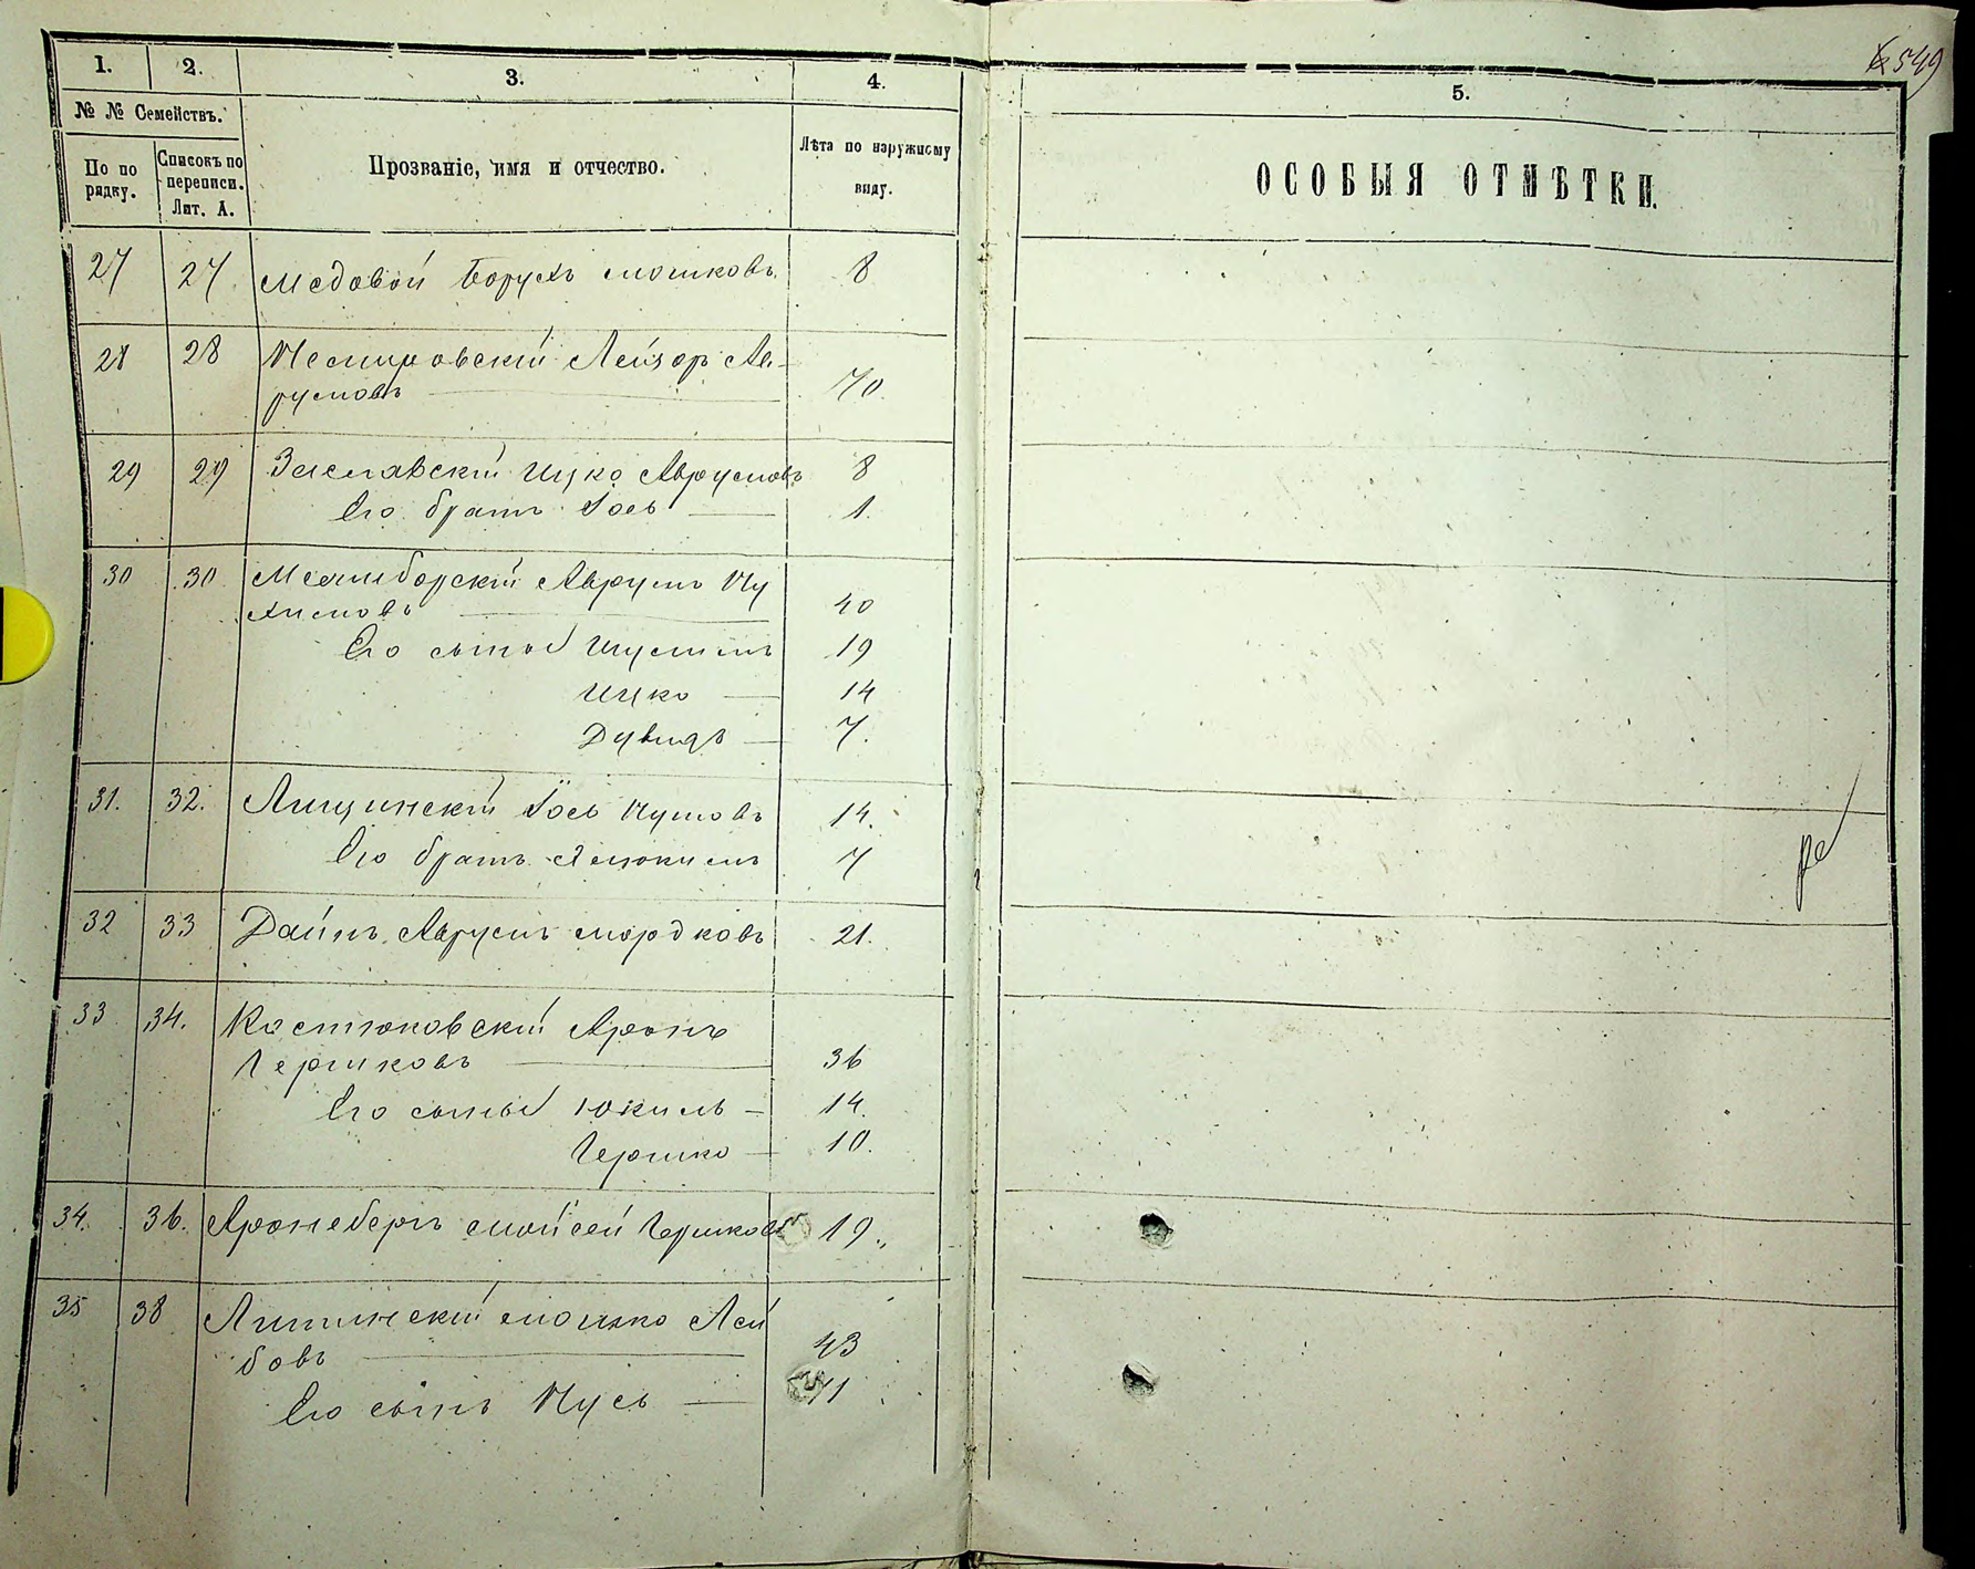 549
1. 2. 3. 4. 5.
№ № Семействъ.
По по рядку.
Списокъ по переписи. Лит. А.
Прозваніе, имя и отчество.
Лѣта по наружному виду.
ОСОБЫЯ ОТМѢТКИ.
27 27 Медовой Борухъ Мошковъ 8
28 28 Немировскій Лейзоръ Ав-
румовъ 70
29 29 Заславскій Ицко Аврумовъ 8
Его братъ Іось 1.
30 30 Межиборскій Аврумъ Ну
химовъ 40
Его сыновья 19
Ицко 14
Дувидъ 7.
31. 32. Лищинскій Іось 14.
Его братъ 7
32 33 Даинъ Аврумъ Мордковъ 21.
33 34. Костюковскій Аронъ
Гершковъ 36
Его сыновья Юкиль 14.
Гершко 10.
34. 36. Аронебергъ Мойсей Гершковъ 19.
35 38 Литинскій Мошко Лей
бовъ 43
Его сынъ Нусь 11